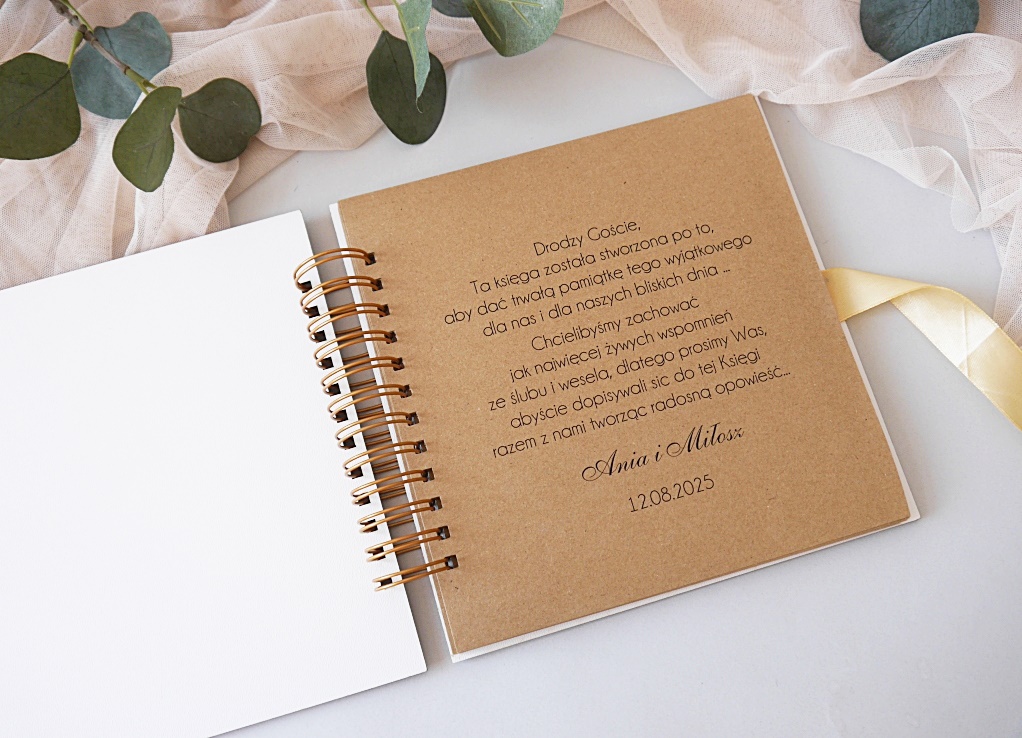 Drodzy Goście,
Ta księga została stworzona po to,
aby dać trwałą pamiątkę tego wyjątkowego
dla nas i dla naszych bliskich dnia ...
Chcielibyśmy zachować
jak najwięcej żywych wspomnień
ze ślubu i wesela, dlatego prosimy Was,
abyście dopisywali sic do tej Księgi
razem z nami tworząc radosną opowieść...
Ania i Miłosz
12.08.2025